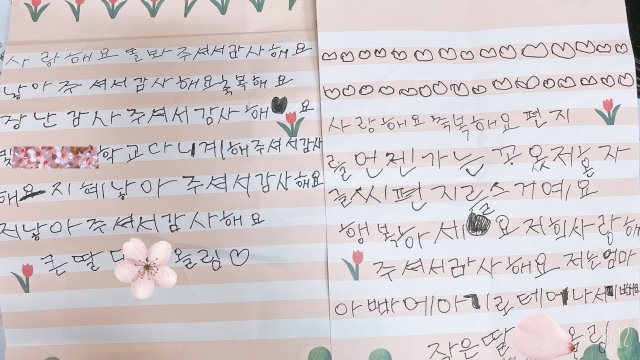 사랑해요 돌봐주셔서감사해요
낳아주셔서감사해요축복해요
장난감사주셔서감사해요
학교다니게해주셔서감사
해요 지혜낳아주셔서감사해요
저낳아주셔서감사해요
큰딸 올림♡
사랑해요축복해요편지
를언젠가는 꼭
편지를쓸거예요
행복하세요 저희사랑해
주셔서감사해요 저는엄마
아빠에
작은딸 올림